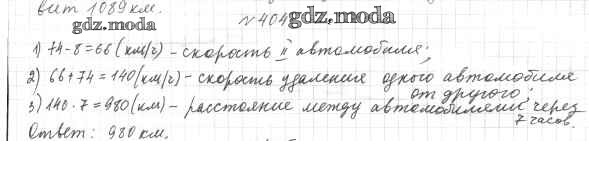 вит 1089 км.
gdz.moda
№404 gdz.moda
1) 74-8=66 (км/ч) - скорость II автомобиля;
2) 66+74=140 (км/ч) - скорость удаление одного автомобиля
от другого;
3) 140·7=980 (км) - расстояние между автомобилями через
7 часов.
Ответ: 980 км.